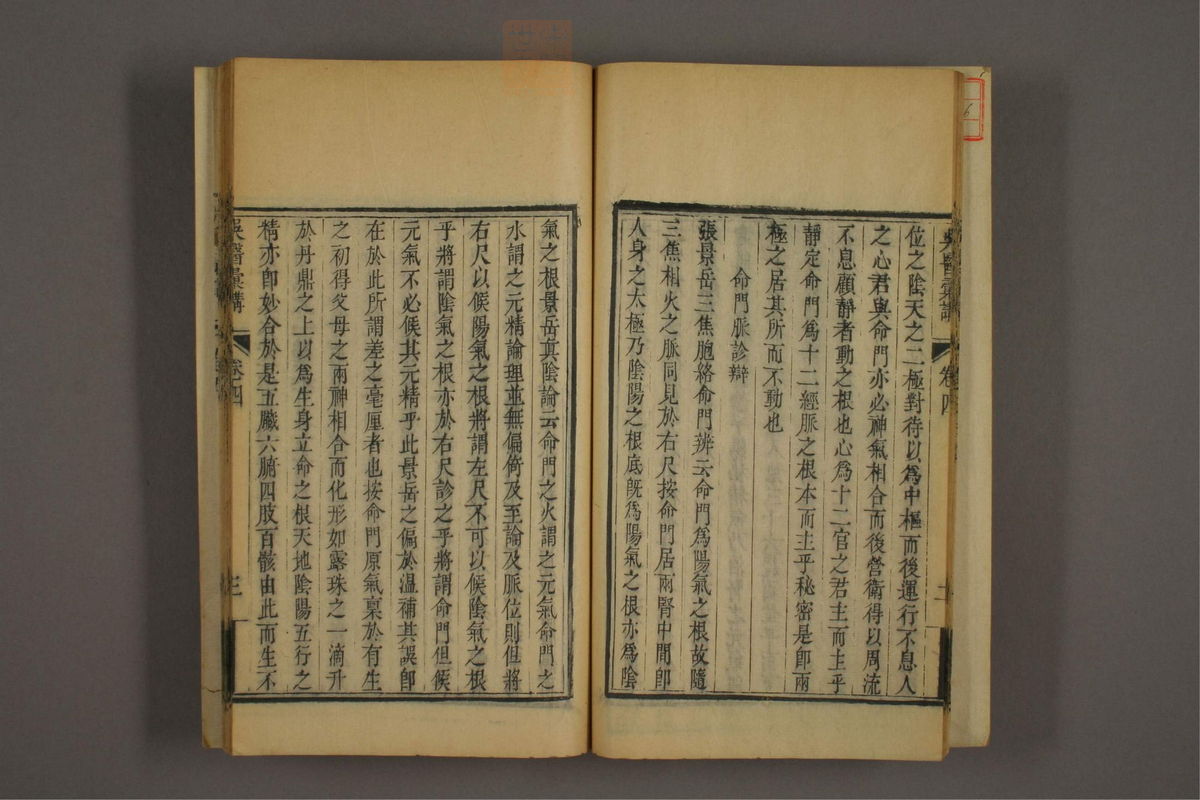 吳醫彙講
卷四
位之陰天之二極對待以爲中樞而後運行不息人
之心君與命門亦必神氣相合而後營衛得以周流
不息顧靜者動之根也心爲十二官之君主而主乎
靜定命門爲十二經脈之根本而主乎秘密是卽兩
極之居其所而不動也
命門脈診辯
張景岳三焦胞絡命門辨云命門爲陽氣之根故隨
三焦相火之脈同見於右尺按命門居兩腎中間卽
人身之太極乃陰陽之根底旣爲陽氣之根亦爲陰
氣之根景岳眞陰論云命門之火謂之元氣命門之
水謂之元精論理並無偏倚及至論及脈位則但將
右尺以候陽氣之根將謂左尺不可以候陰氣之根
乎將謂陰氣之根亦於右尺診之乎將謂命門但候
元氣不必候其元精乎此景岳之偏於温補其誤卽
在於此所謂差之毫厘者也按命門原氣稟於有生
之初得父母之兩神相合而化形如露珠之一滴升
於丹鼎之上以爲生身立命之根天地陰陽五行之
精亦卽妙合於是五臟六腑四肢百骸由此而生不
吳醫彙講
卷四
三